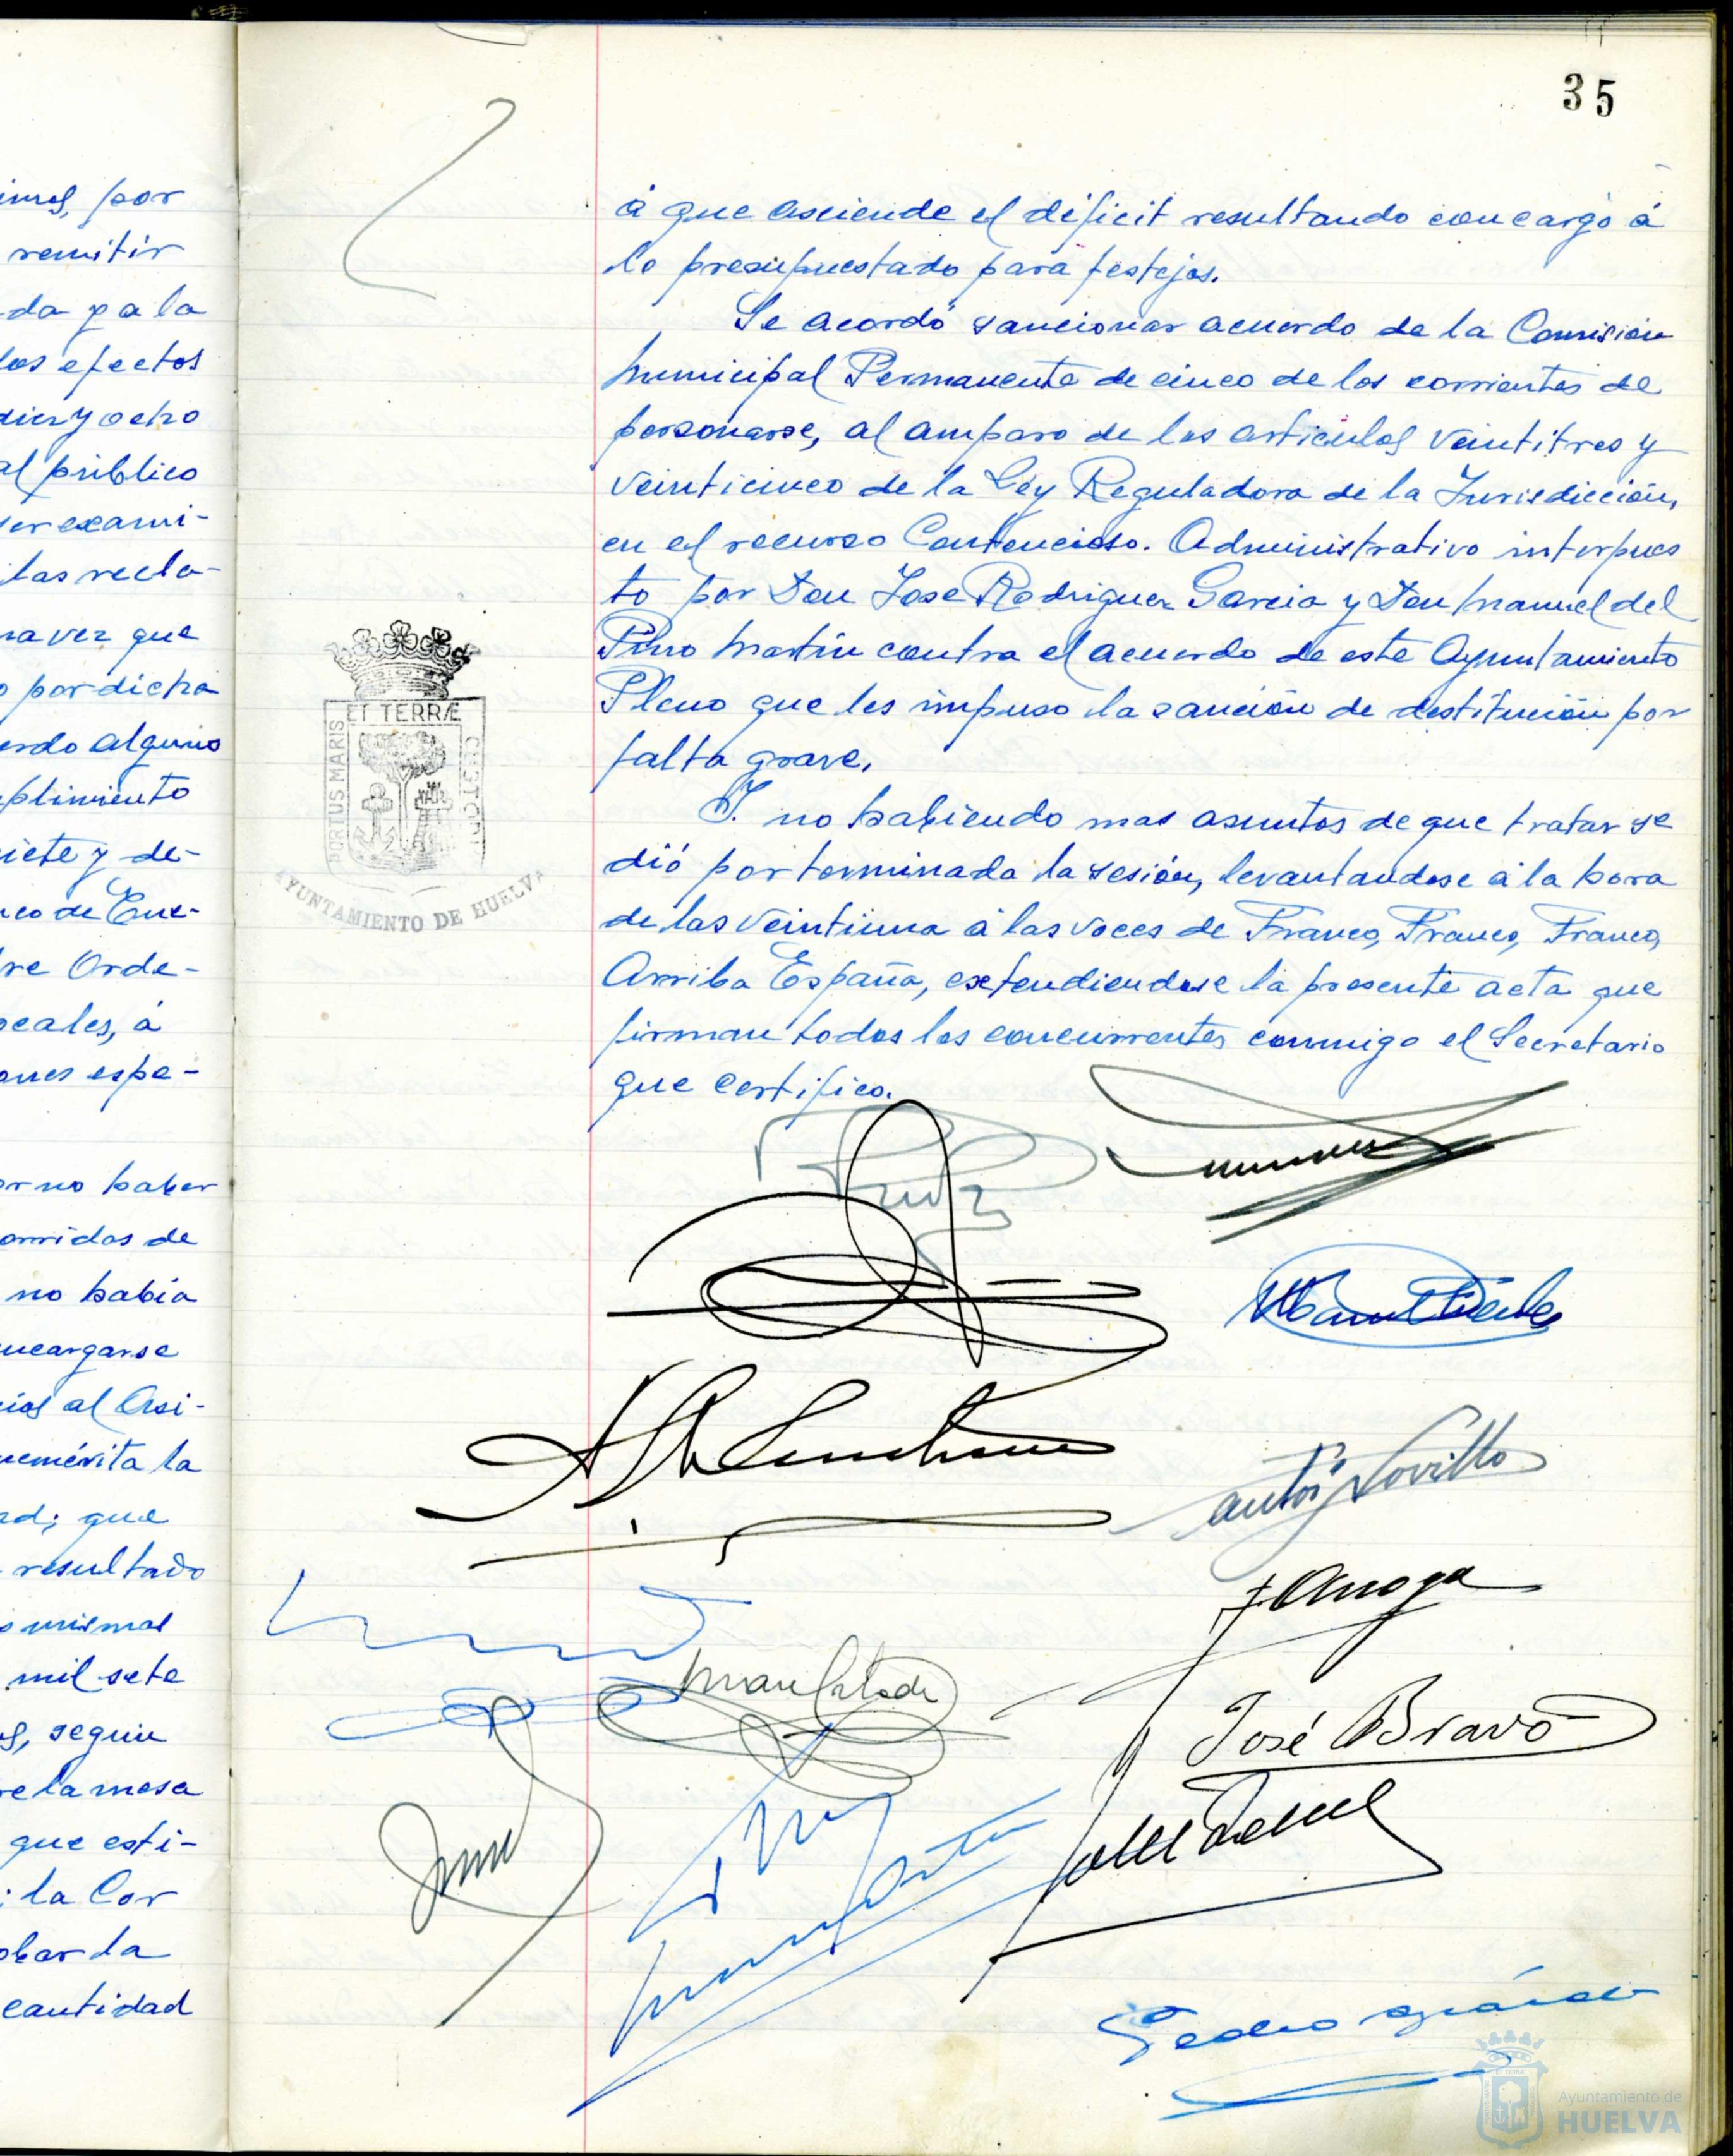 imas, por
remitir
da y a la
los efectos
diez y ocho
al público
ser exami-
las recla-
na vez que
o por dicha
erdo alguno
plimiento
iete y de-
neo de Ene-
re Orde-
ocales, á
ones espe-
or no haber
orridas de
no habia
ncargarse
cias al Asi-
nemérita la
ad; que
resultado
s mismas
mil sete
s, segun
re la mesa
que esti-
; la Cor
obar la
cantidad
35
á que asciende el déficit resultando con cargo á
lo presupuestado para festejos.
Se acordó sancionar acuerdo de la Comisión
Municipal Permanente de cinco de los corrientes de
personarse, al amparo de los articulos veintitres y
veinticinco de la Ley Reguladora de la Jurisdicción,
en el recurso Contencioso. Administrativo interpues
to por Don Jose Rodriguez Garcia y Don Manuel del
Pino Martin contra el acuerdo de este Ayuntamiento
Pleno que les impuso la sanción de destitución por
falta grave.
Y no habiendo mas asuntos de que tratar se
dió por terminada la sesión, levantandose á la hora
de las veintiuna á las voces de Franco, Franco, Franco,
Arriba España, extendiendose la presente acta que
firman todos los concurrentes conmigo el Secretario
que certifico.
PORTUS MARIS ET TERRÆ CUSTODIA
AYUNTAMIENTO DE HUELVA
José Bravo
Ayuntamiento de
HUELVA